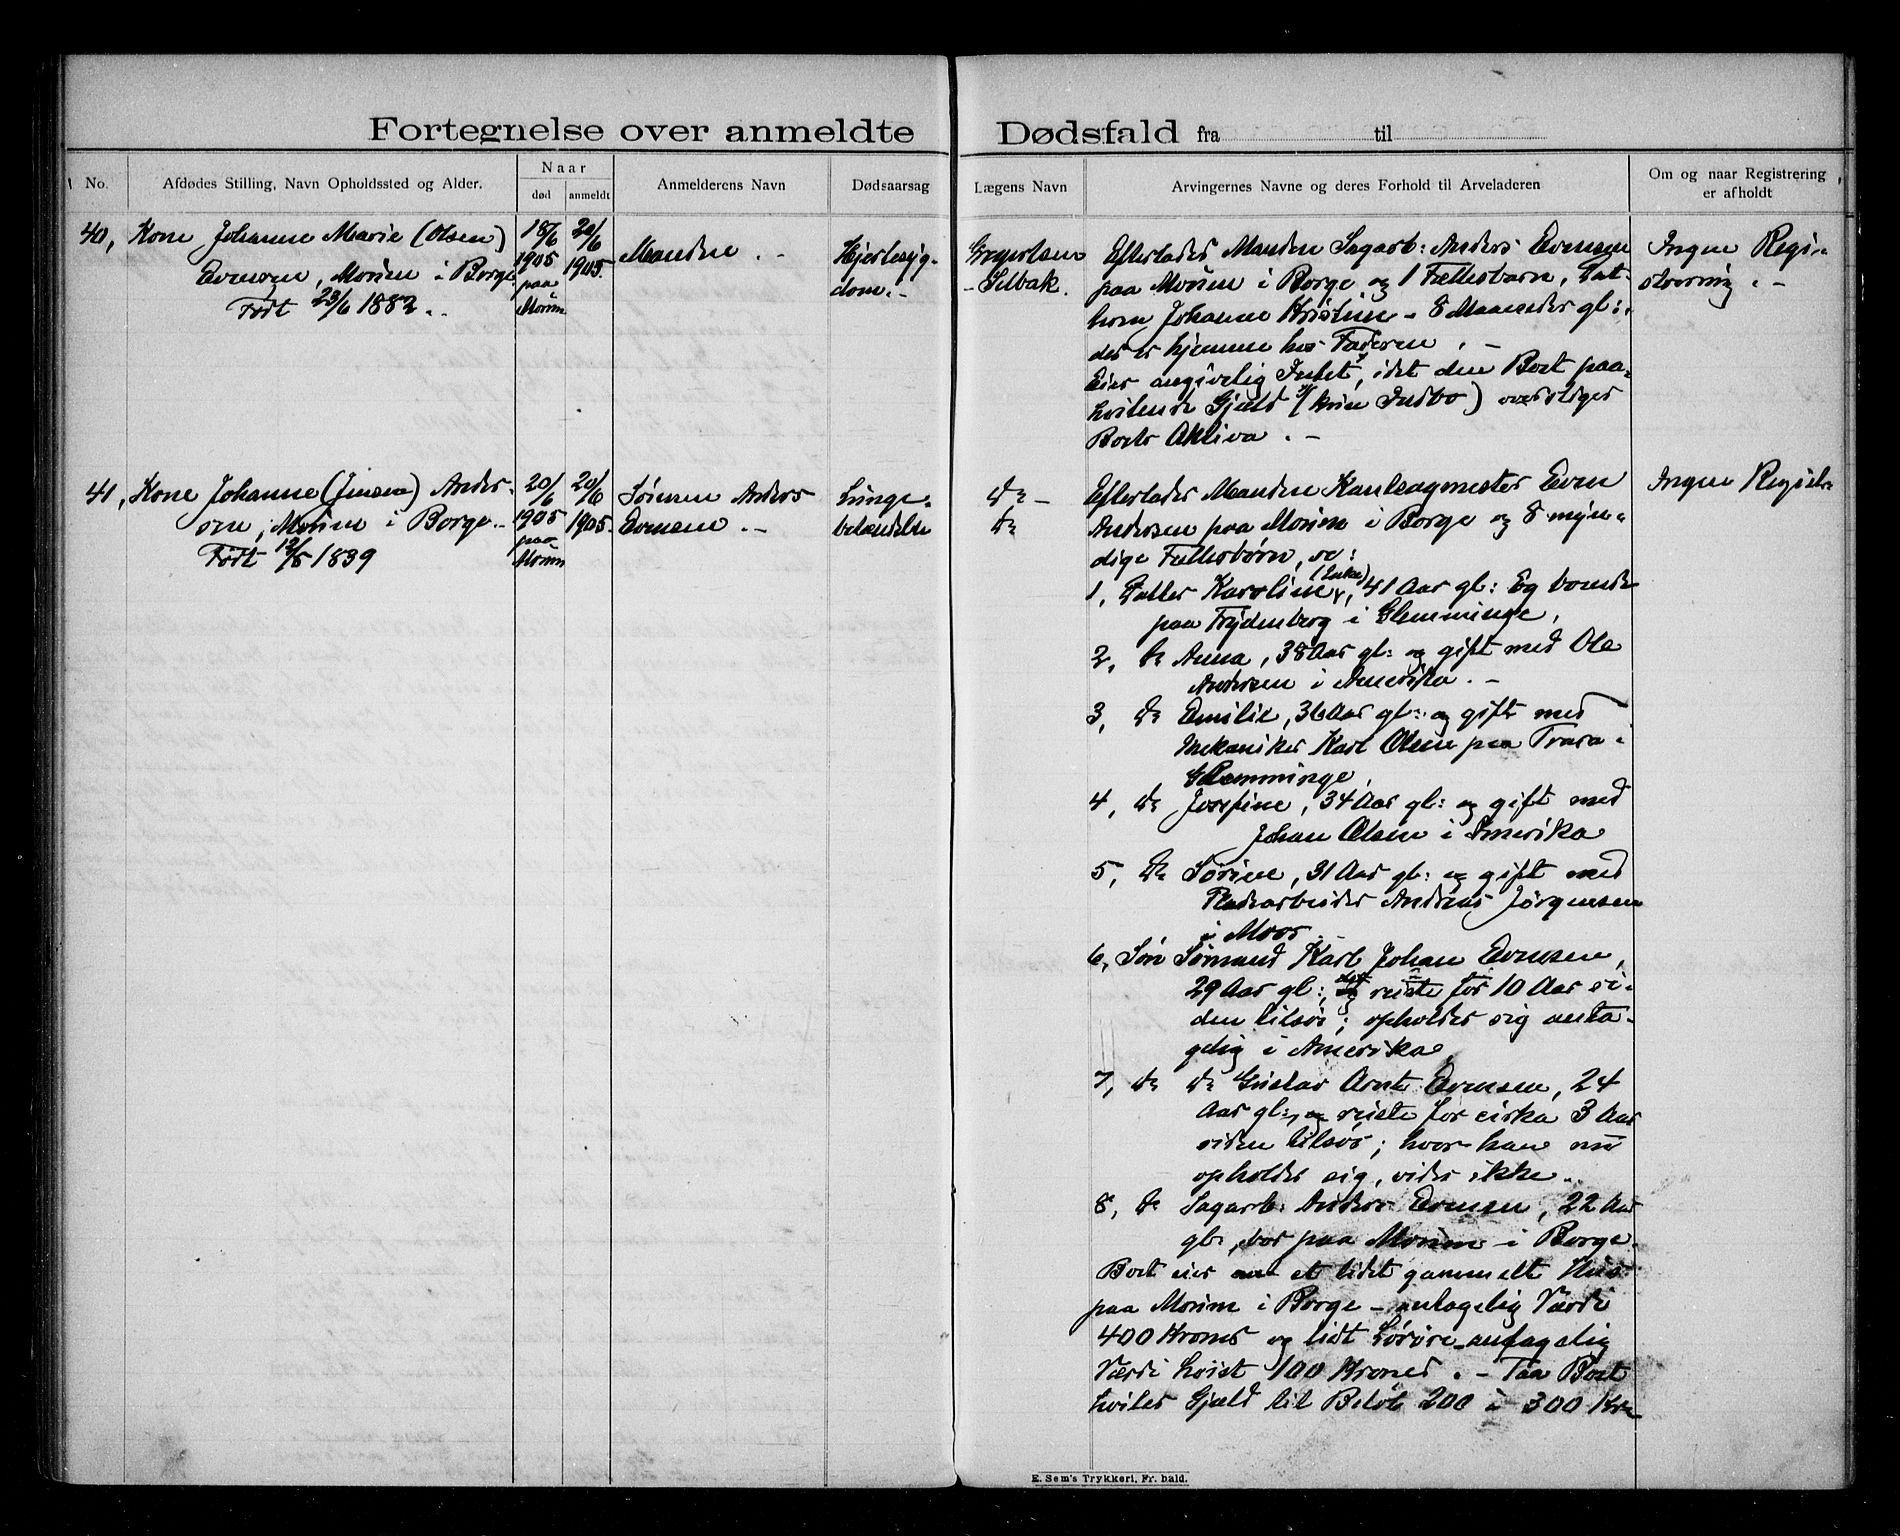 Fortegnelse over anmeldte Dødsfald fra til
No.
Afdødes Stilling, Navn Opholdssted og Alder.
Naar
død
anmeldt
Anmelderens Navn
Dødsaarsag
Lægens Navn
Arvingernes Navne og deres Forhold til Arveladeren
Om og naar Registrering
er afholdt
40, Kone Johanne Marie (Olsen)
Evensen, Moum i Borge
Født 23/6 1882.
18/6
1905
paa
Moum
20/6
1905.
Manden. -
Hjertesyg-
dom. -
Gregertsen
- Selbak.
Efterlader Manden Sagarb: Anders Evensen
paa Moum i Borge og 1 Fællesbarn, Dat-
teren Johanne Kristine - 8 Maaneder gl:,
der er hjemme hos Faderen. -
Eier angivelig Intet, idet den Boet paa-
hvilende Gjæld (kun Indbo) overstiger
Boets Aktiva. -
Ingen Regi-
strering. -
41, Kone Johanne (Jensen) Ander-
sen, Moum i Borge. -
Født 12/5 1839
20/6
1905
paa
Moum
20/6
1905.
Sønnen Anders
Evensen. -
Lunge-
betændelse
do -
do
Efterlader Manden Kantsagmester Even
Andersen paa Moum i Borge og 8 myn-
dige Fællesbørn, se:
1, Datter Karoline (Enke), 41 Aar gl: Og boende
paa Trydenborg i Glemminge,
2, do Anna, 38 Aar gl: og gift med Ole
Andersen i Amerika. -
3, do Emilie, 36 Aar gl: og gift med
Mekaniker Karl Olsen paa Trara -
Glemminge,
4, do Josefine, 34 Aar gl: og gift med
Johan Olsen i Amerika
5, do Sørine, 31 Aar gl: og gift med
Andreas Jørgensen
i Moss
6, Søn Sømand Karl Johan Evensen,
29 Aar gl:, reiste for 10 Aar si-
den tilsøs; opholder sig anta-
gelig i Amerika,
7, do do Gustav Arnt Evensen, 24
Aar gl:, og reiste for cirka 3 Aar
siden tilsøs; hvor han nu
opholder sig, vides ikke.
8, do Sagarb: Anders Evensen, 22 Aar
gl:, bor paa Moum i Borge.
Boet eier et lidet gammelt Hus
paa Moum i Borge - antagelig Værdi
400 Kroner og lidt Løsøre - antagelig
Værdi høist 100 Kroner. - Paa Boet
hviler Gjæld til Beløb 200 à 300 Kr
Ingen Registr:
E. Sem's Trykkeri, Fr.hald.